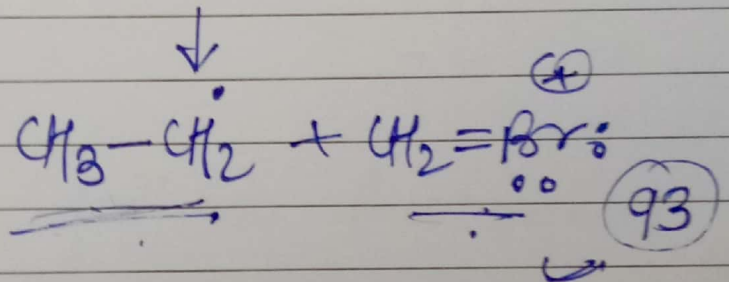 CH3-ĊH2 + CH2=Br: ⊕ 93